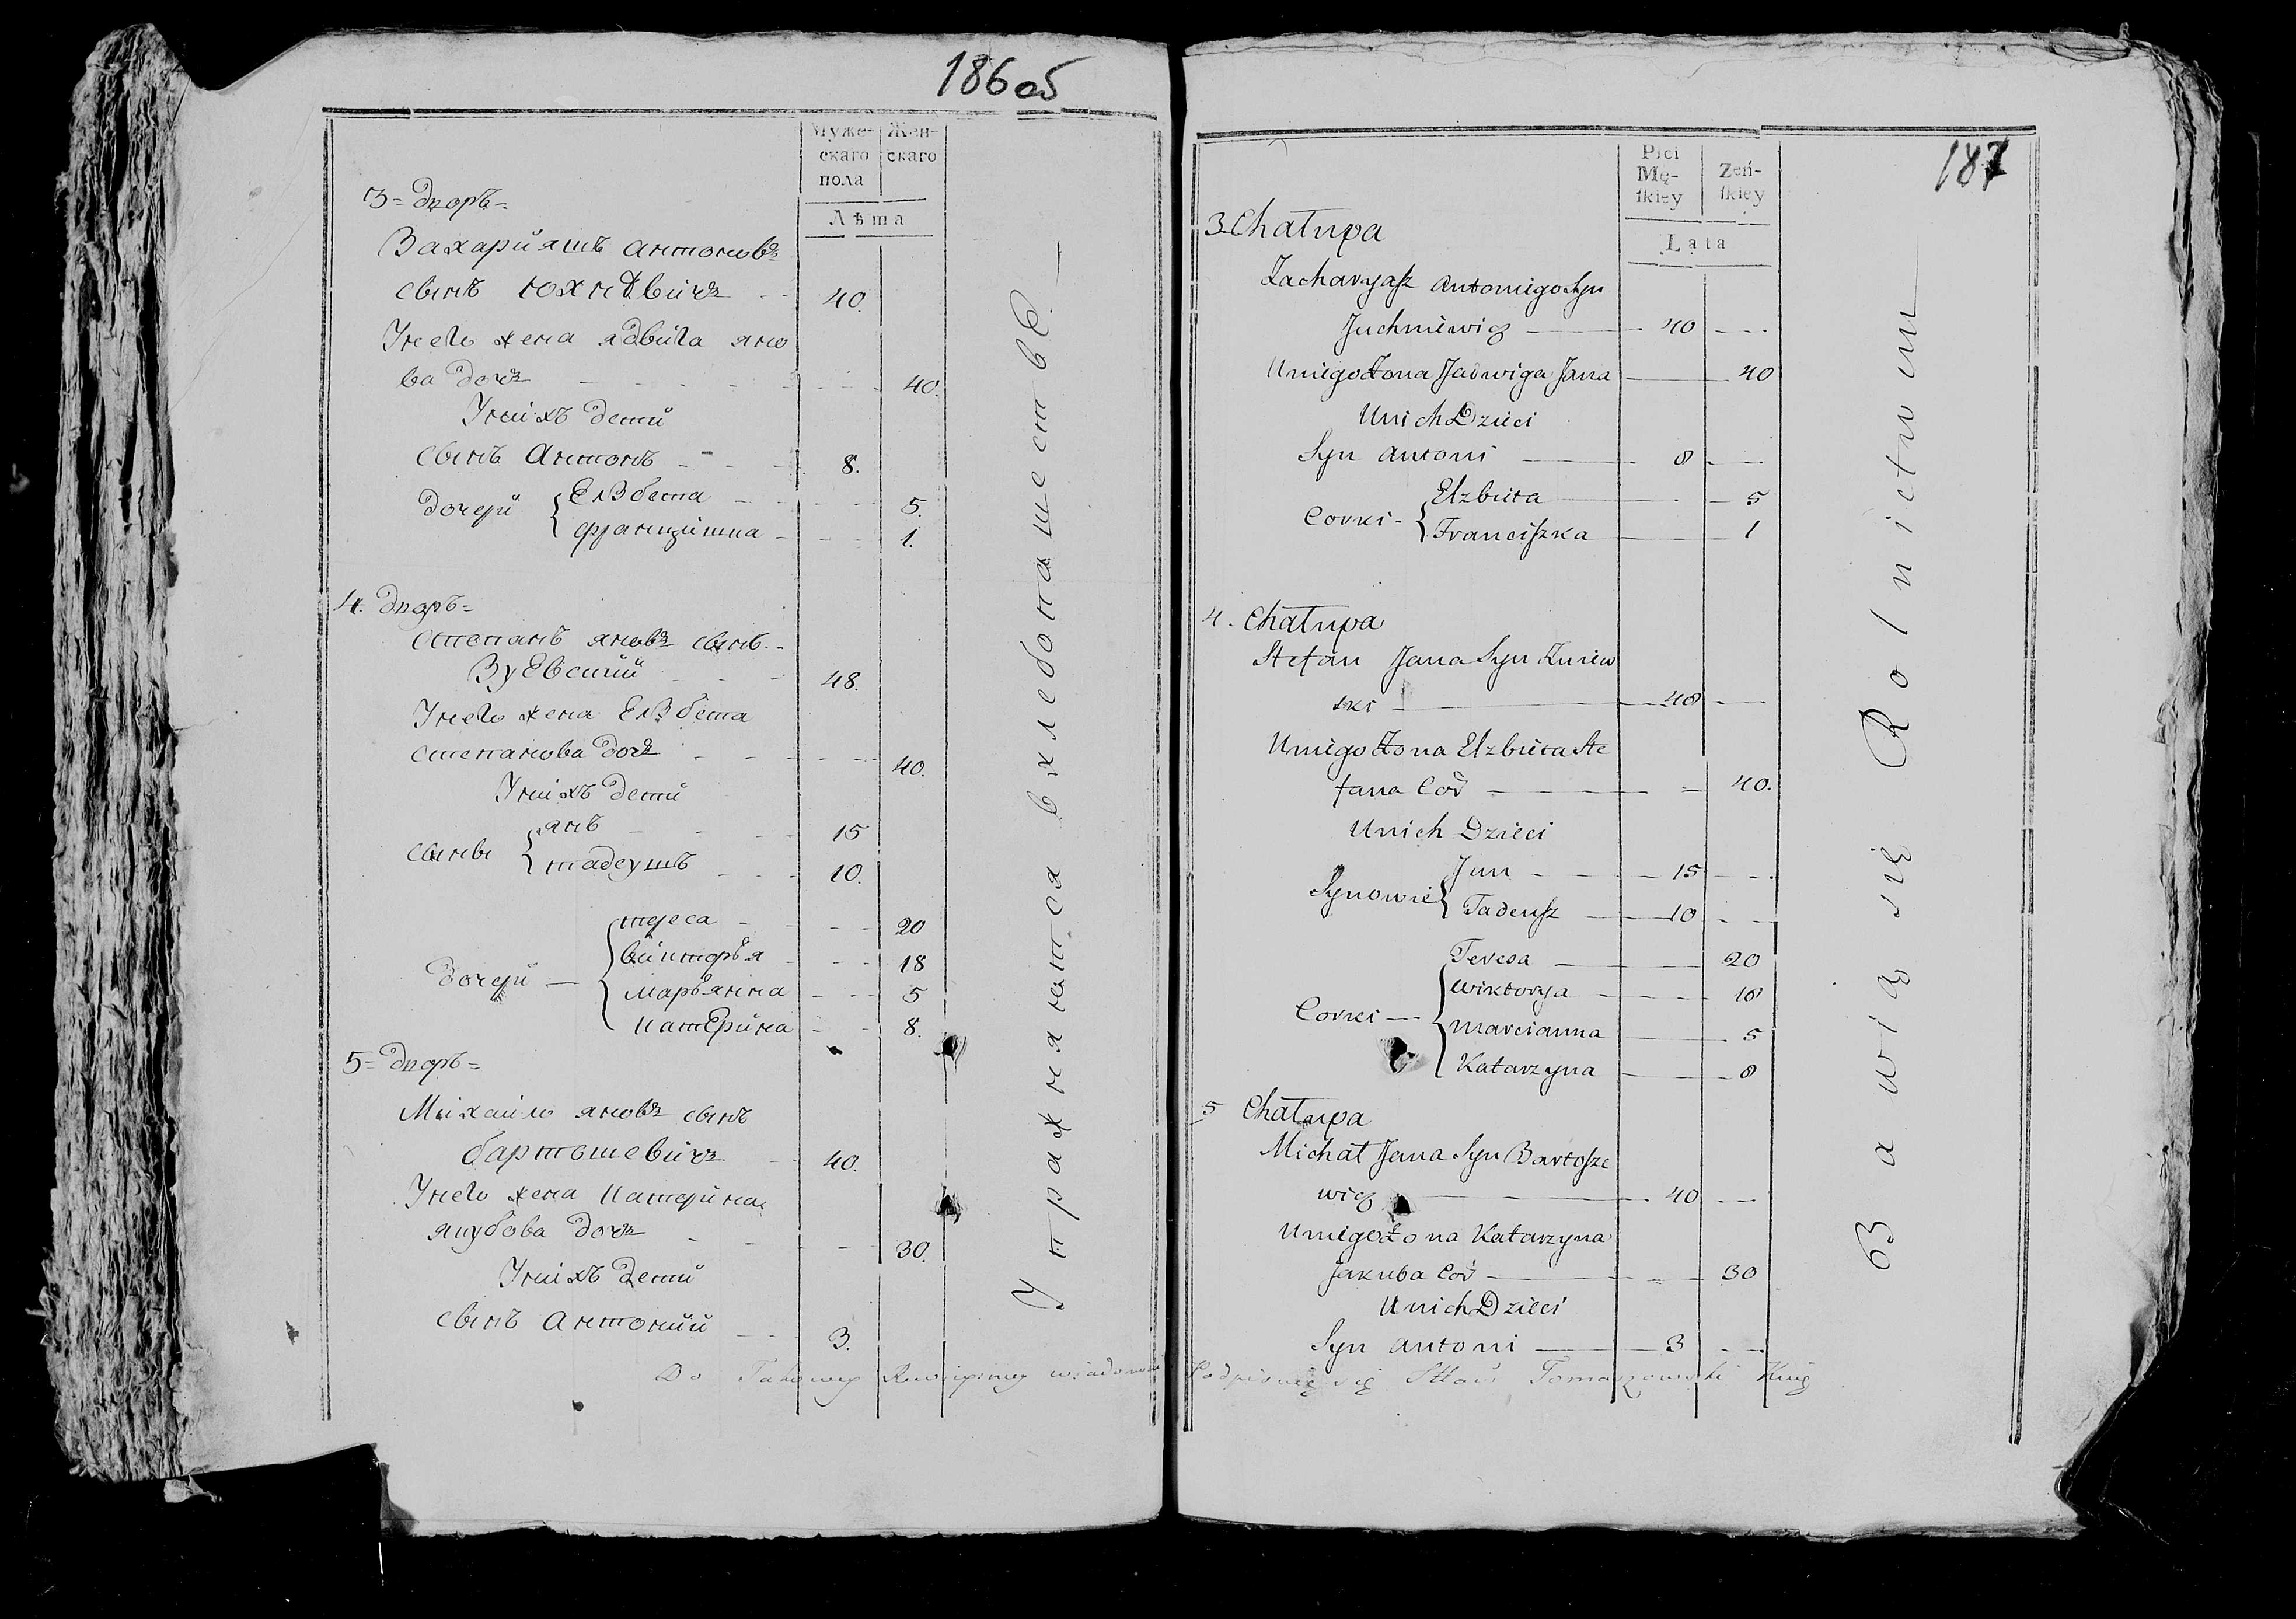 186 об
Муже-
скаго
пола
Жен-
скаго
Лѣта
3= Дворъ=
Захарйяшъ антоновъ
сынъ юхнѣвичъ 40.
Унего жена ядвига яно
ва дочь 40.
Унихъ дети
сынъ антонъ 8.
дочери Елзбета 5.
францишка 1.
4. Дворъ=
Степанъ яновъ сынъ
Зуевский 48.
Унего жена Елзбета
степанова дочь 40.
Унихъ дети
сыновья янъ 15
тадеушъ 10.
дочери тереса 20
викторья 18
марьянна 5
катерина 8.
5= Дворъ=
Михайло яновъ сынъ
бартошевичъ 40.
Унего жена катерина
якубова дочь 30.
Унихъ дети
сынъ антоний 3.
Упражняются в хлебопашестве.
187
Płci
Mę-
ſkiey
Zeń-
ſkiey
Lata
3 Chałupa
Zacharyaſz antoniego Syn
Juchniewicz 40
U niego Żona Jadwiga Jana 40
U nich Dzieci
Syn antoni 8
Corki Elzbieta 5
Franciſzka 1
4. Chałupa
Stefan Jana Syn Zuiew
ski 48
U niego Żona Elzbieta Ste
fana Cor 40.
U nich Dzieci
Synowie Jan 15
Tadeuſz 10
Corki Teresa 20
Wiktorya 18
Marcianna 5
Katarzyna 8
5 Chałupa
Michał Jana Syn Bartoſze
wicz 40
U niego Żona Katarzyna
Jakuba Cor 30
U nich Dzieci
Syn antoni 3
Bawią się Rolnictwem
Do Takowey Rewizyiney wiadomości Podpisuię się Tomaszewski